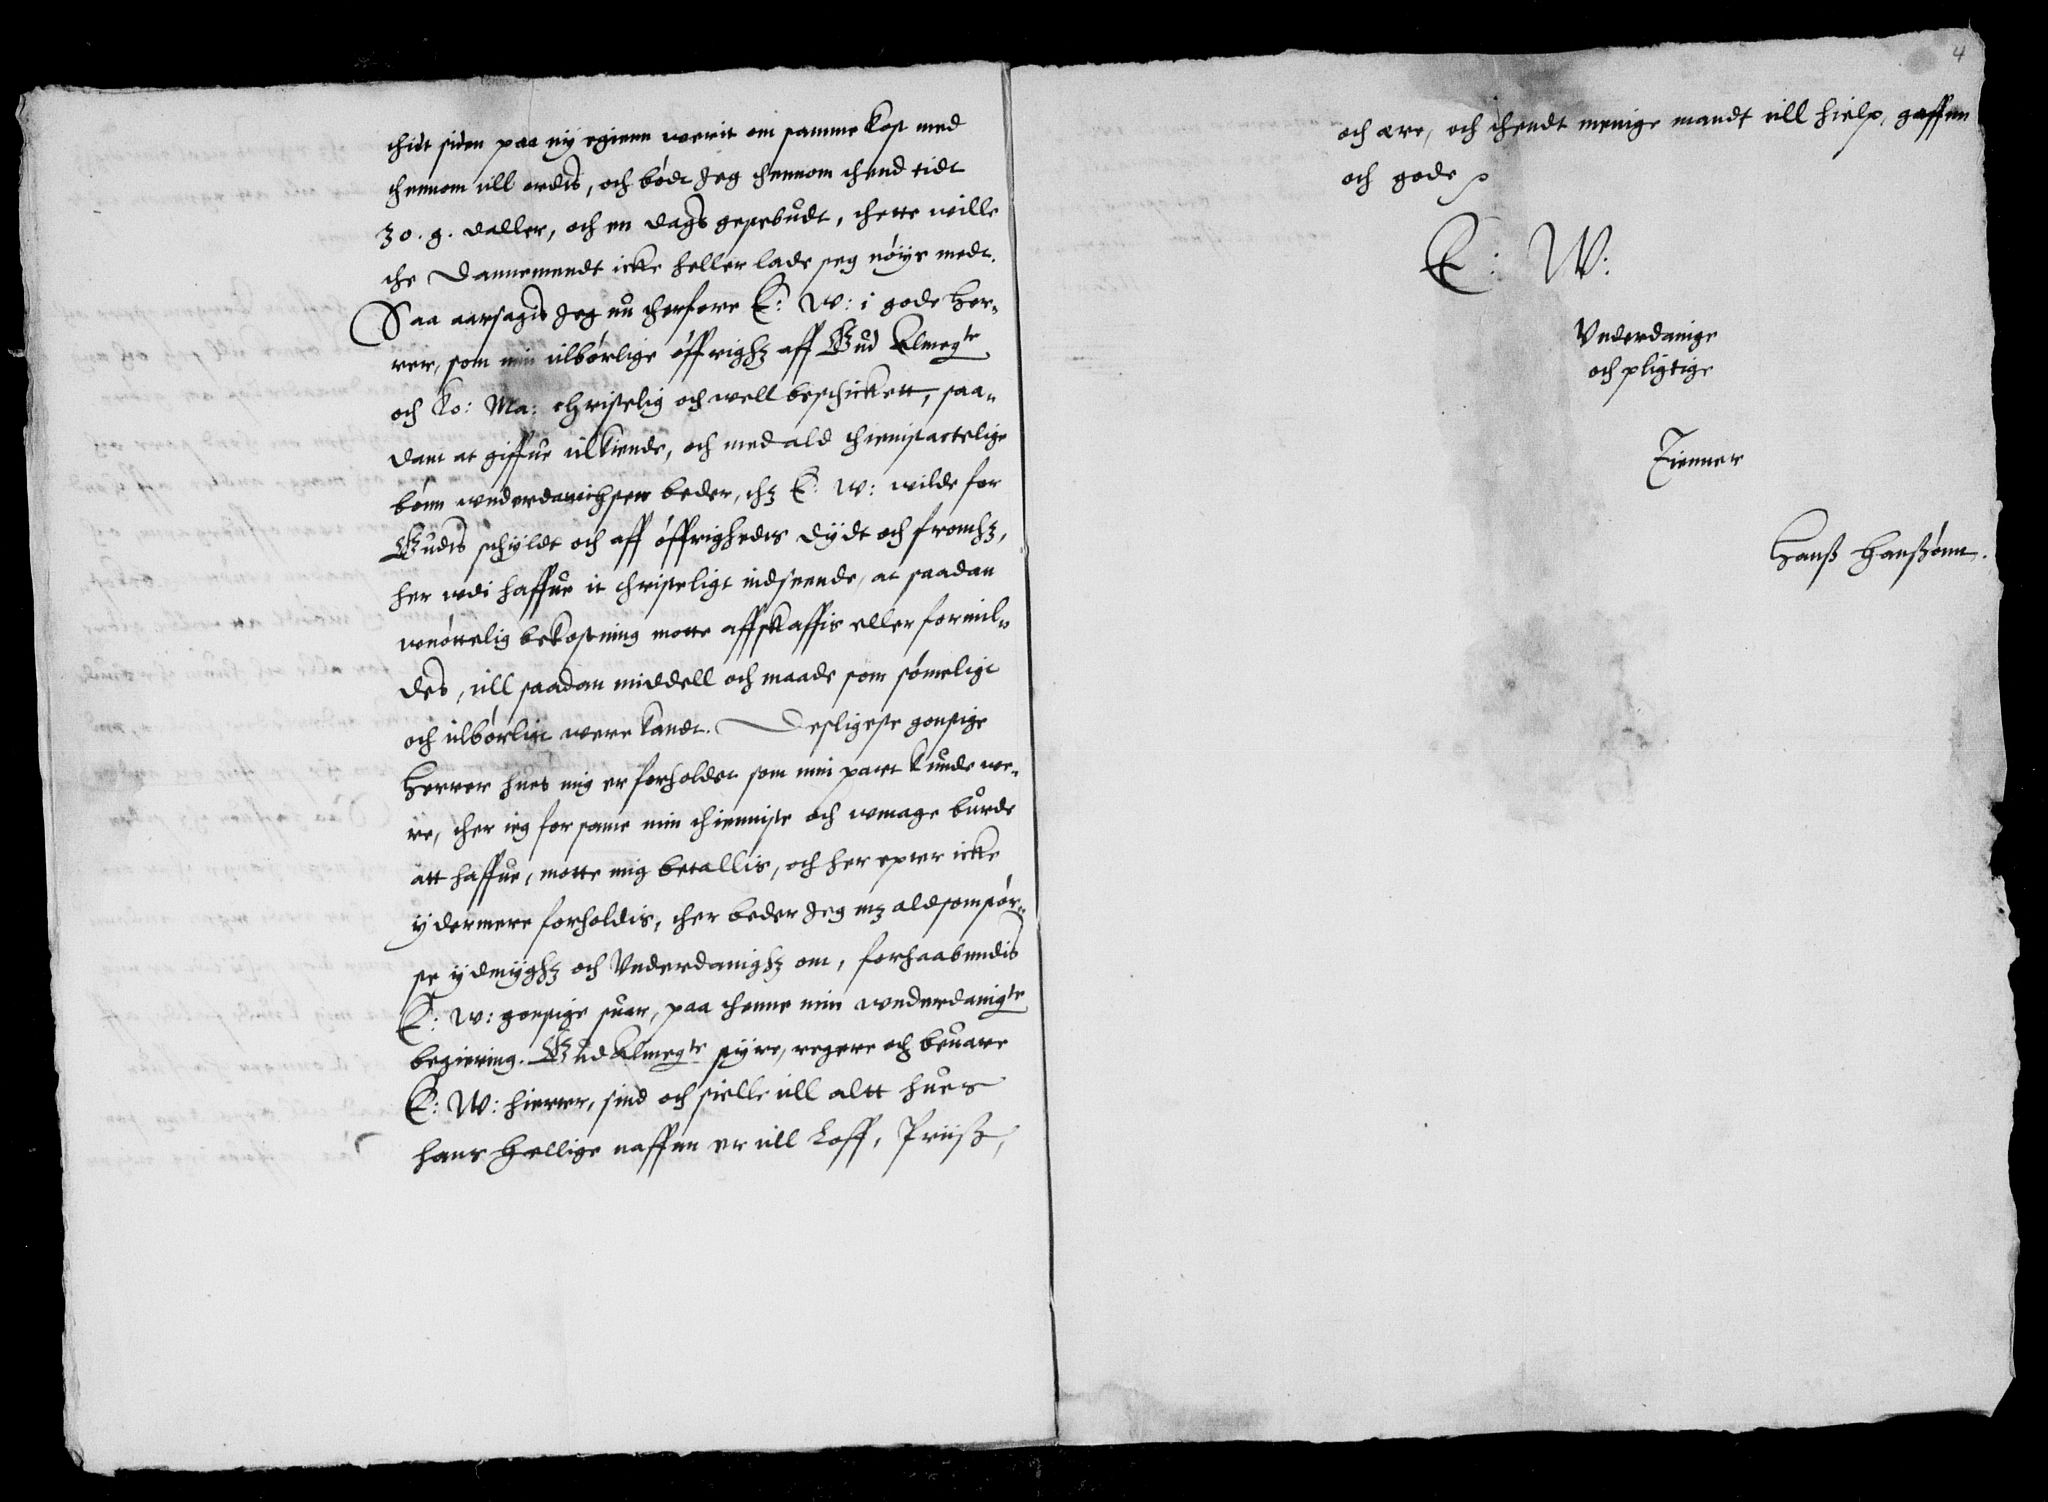 thidt siden paa ny igienn werit om samme kost med
thennom till ordis, och bødt Jeg thennom thend tidt
30. g. daller, och en dags gestebudt, thette wille
the Dannemendt icke heller lade seg nøye medt.
Saa aarsagis Jeg nu therfore E: W: i gode Her-
rer, som min tilbørlige øffrighz aff Gud Almegte
och Ko: Ma: christelig och well beschickett, saa-
dant at giffue tilkiende, och med ald thienistactelige
bønn wnderdanichsten beder, thz E: W: wilde for
Gudts schyldt och aff øffrighedts dydt och fromhz,
her wdi haffue it christeligt indseende, at saadan
wnøttelig bekostning motte affskaffis eller formil-
des, till saadan middell och maade som sømeligt
och tilbørligt were kandt. Desligeste gonstige
Herrer hues mig er forholdet som min part kunde we-
re, ther ieg for same min thienniste och wmage burde
att haffue, motte mig betallis, och her epter icke
ydermere forholdis, ther beder Jeg mz aldsomstør-
ste ydmyghz och Vnderdanighz om, forhaabendis
E: W: gonstige suar, paa thenne min wnderdanigte
begiering. Gud Almegte styre, regere och beuare
E: W: hierter, sind och sielle till altt hues
hans Hellige naffnn er till Loff, Priiß,
4
och ære, och thendt menige mandt till hielp, gaffnn
och gode
E: W:
Vnderdanige
och pligtige
Tienner
Hanß Hanßønn.